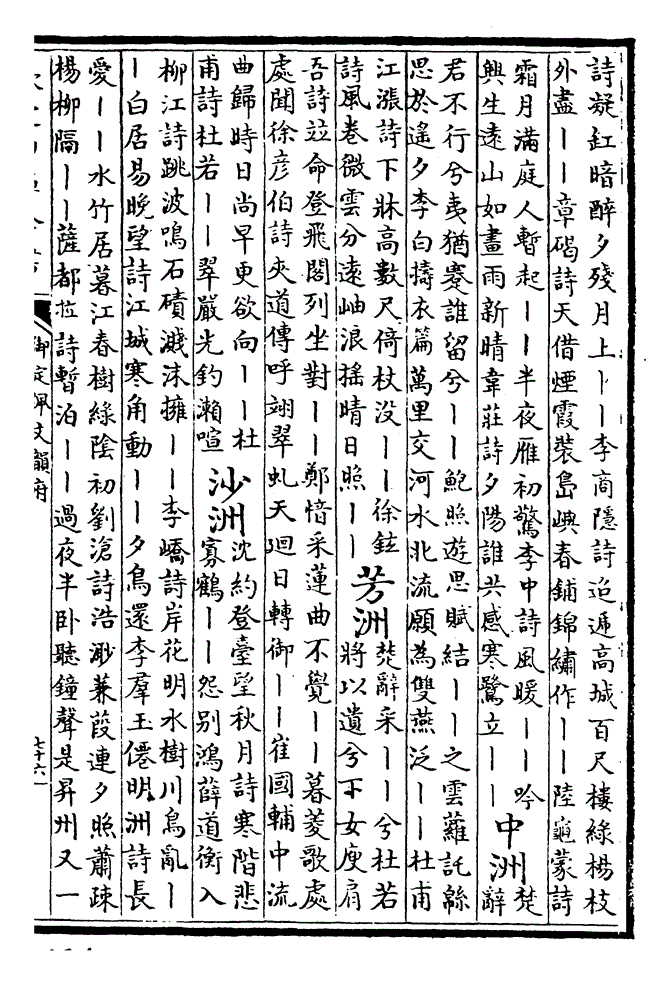 詩凝紅暗醉夕殘月上丨丨李商隱詩迢遞高城百尺樓綠楊枝
外盡丨丨章碣詩天借煙霞裝島嶼春鋪錦繡作丨丨陸龜蒙詩
霜月滿庭人暫起丨丨半夜雁初驚李中詩風暖丨丨吟
興生遠山如畫雨新晴韋莊詩夕陽誰共感寒鷺立丨丨
中洲
楚
辭
君不行兮夷猶蹇誰留兮丨丨鮑照遊思賦結丨丨之雲蘿託緜
思於遙夕李白擣衣篇萬里交河水北流願為雙燕泛丨丨杜甫
江漲詩下牀高數尺倚杖没丨丨徐鉉
詩風卷微雲分遠岫浪搖晴日照丨丨
芳洲
楚辭采丨丨兮杜若
將以遺兮下女庾肩
吾詩竝命登飛閣列坐對丨丨鄭愔采蓮曲不覺丨丨暮菱歌處
處聞徐彦伯詩夾道傳呼翊翠虬天廻日轉御丨丨崔國輔中流
曲歸時日尚早更欲向丨丨杜
甫詩杜若丨丨翠嚴光釣瀨喧
沙洲
沈約登臺望秋月詩寒階悲
寡鶴丨丨怨别鴻薛道衡入
柳江詩跳波鳴石磧濺沫擁丨丨李嶠詩岸花明水樹川鳥亂丨
丨白居易晚望詩江城寒角動丨丨夕鳥還李羣玉僊明洲詩長
愛丨丨水竹居暮江春樹綠陰初劉滄詩浩渺蒹葭連夕照蕭疎
楊柳隔丨丨薩都拉詩暫泊丨丨過夜半卧聽鐘聲是昇州又一
御定佩文韻府
七十六